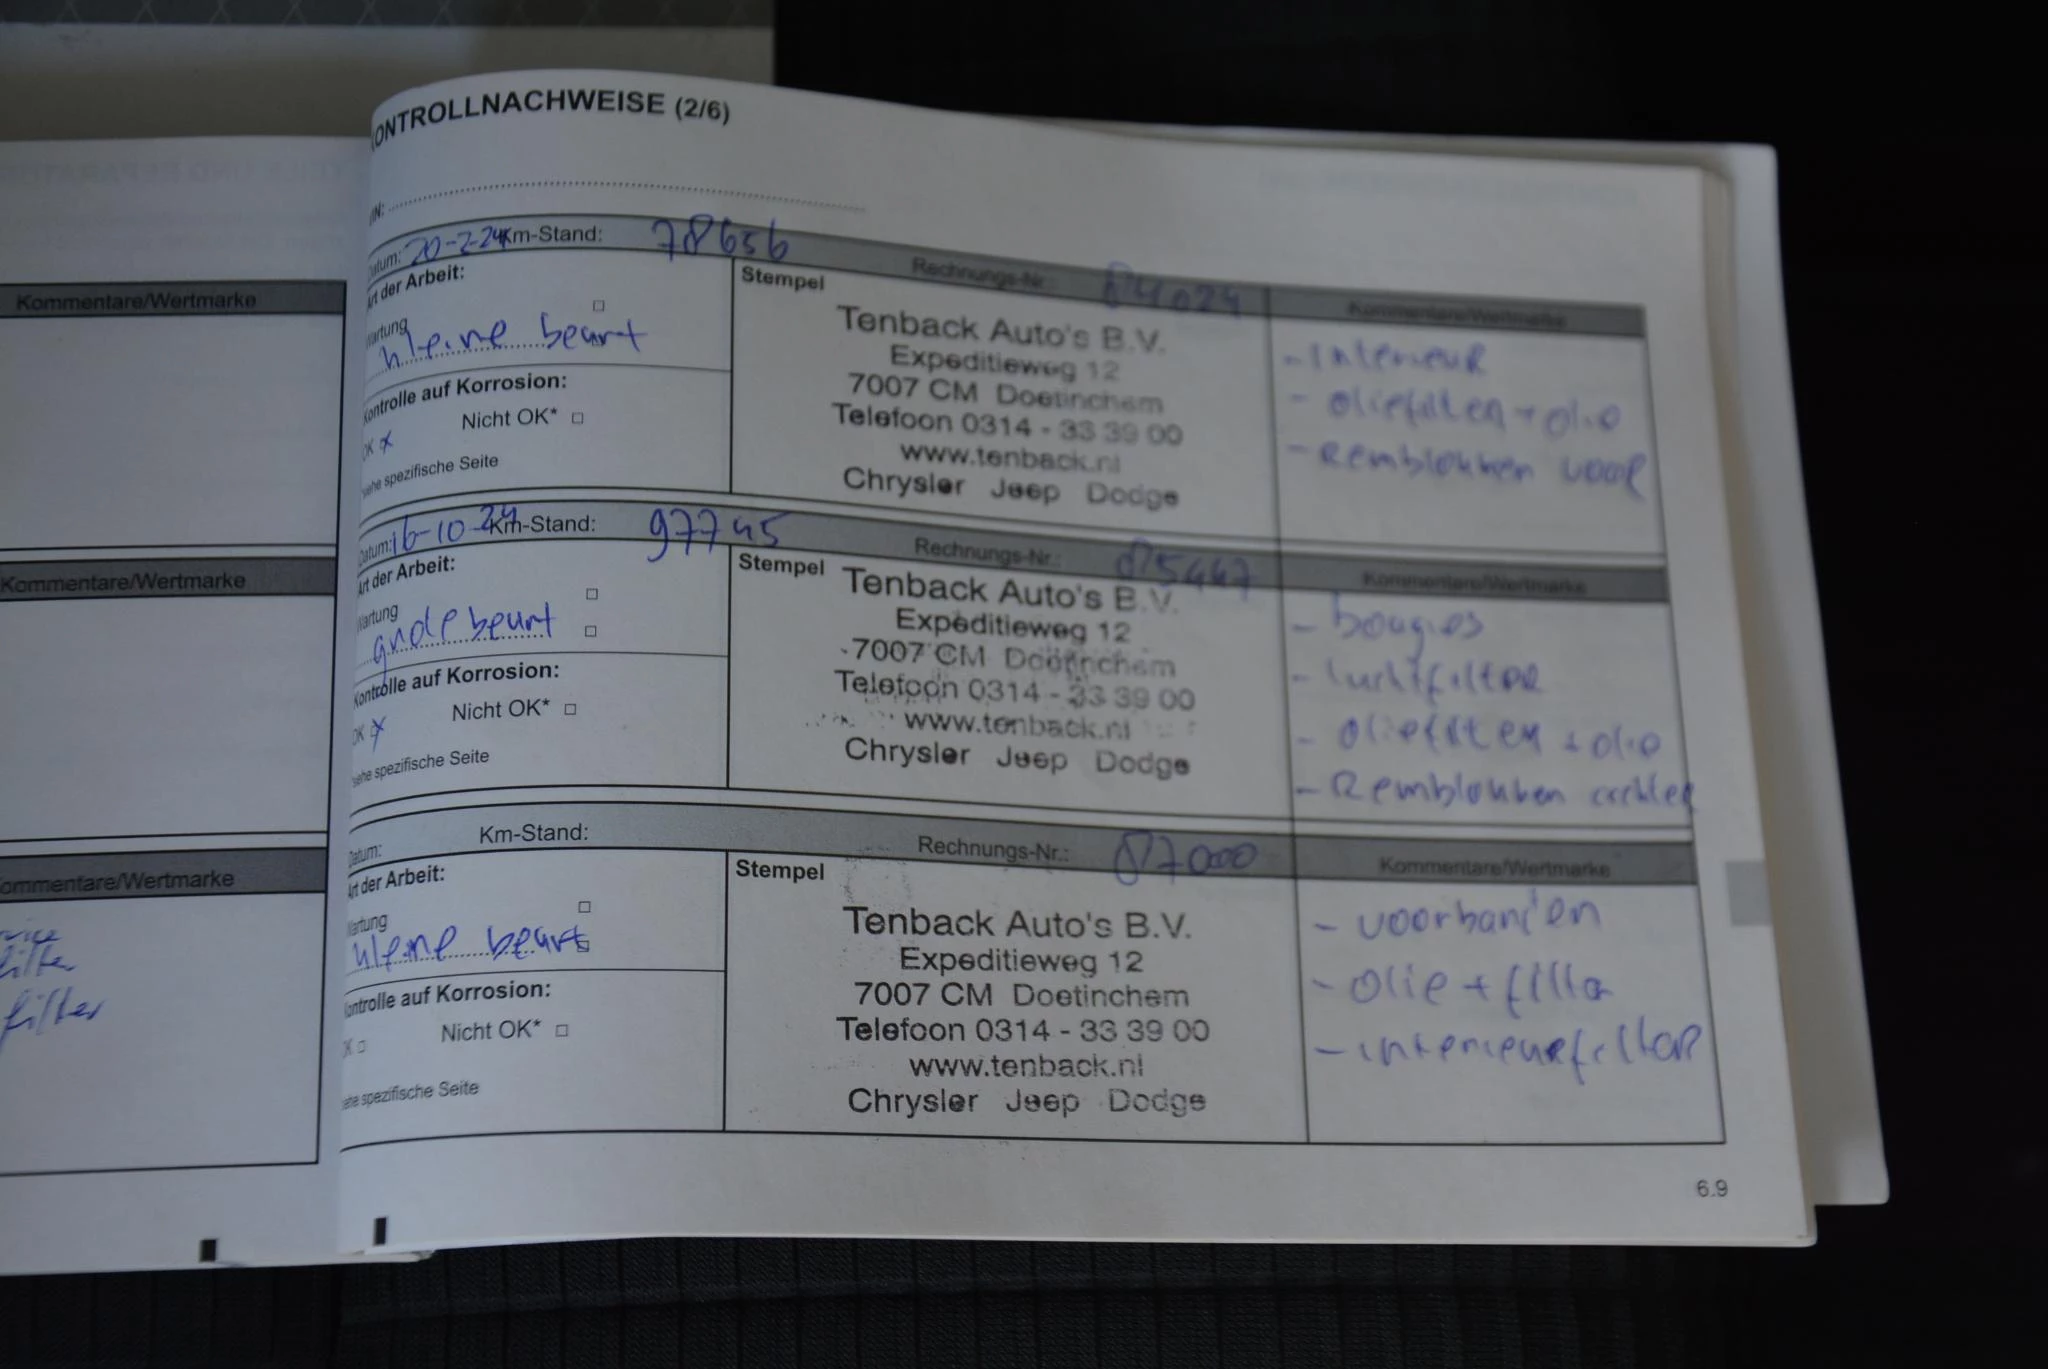 Kommentare/Wertmarke
Kommentare/Wertmarke
ommentare/Wertmarke
filter
ONTROLLNACHWEISE (2/6)
IN:
Datum: 20-2-24 Km-Stand: 78656 Rechnungs-Nr.: 84024 Kommentare/Wertmarke
Art der Arbeit:
Wartung
kleine beurt
Kontrolle auf Korrosion:
Nicht OK*
OK x
siehe spezifische Seite
Stempel
Tenback Auto's B.V.
Expeditieweg 12
7007 CM Doetinchem
Telefoon 0314 - 33 39 00
www.tenback.nl
Chrysler Jeep Dodge
- Interieur
- oliefilter + olie
- Remblokken voor
Datum: 16-10-24 Km-Stand: 97745 Rechnungs-Nr.: 85447 Kommentare/Wertmarke
Art der Arbeit:
Wartung
grote beurt
Kontrolle auf Korrosion:
Nicht OK*
OK x
siehe spezifische Seite
Stempel
Tenback Auto's B.V.
Expeditieweg 12
7007 CM Doetinchem
Telefoon 0314 - 33 39 00
www.tenback.nl
Chrysler Jeep Dodge
- bougies
- luchtfilter
- oliefilter + olie
- Remblokken achter
Datum: Km-Stand: Rechnungs-Nr.: 87000 Kommentare/Wertmarke
Art der Arbeit:
Wartung
kleine beurt
Kontrolle auf Korrosion:
Nicht OK*
OK
siehe spezifische Seite
Stempel
Tenback Auto's B.V.
Expeditieweg 12
7007 CM Doetinchem
Telefoon 0314 - 33 39 00
www.tenback.nl
Chrysler Jeep Dodge
- voorbanden
- olie + filter
- interieurfilter
6.9